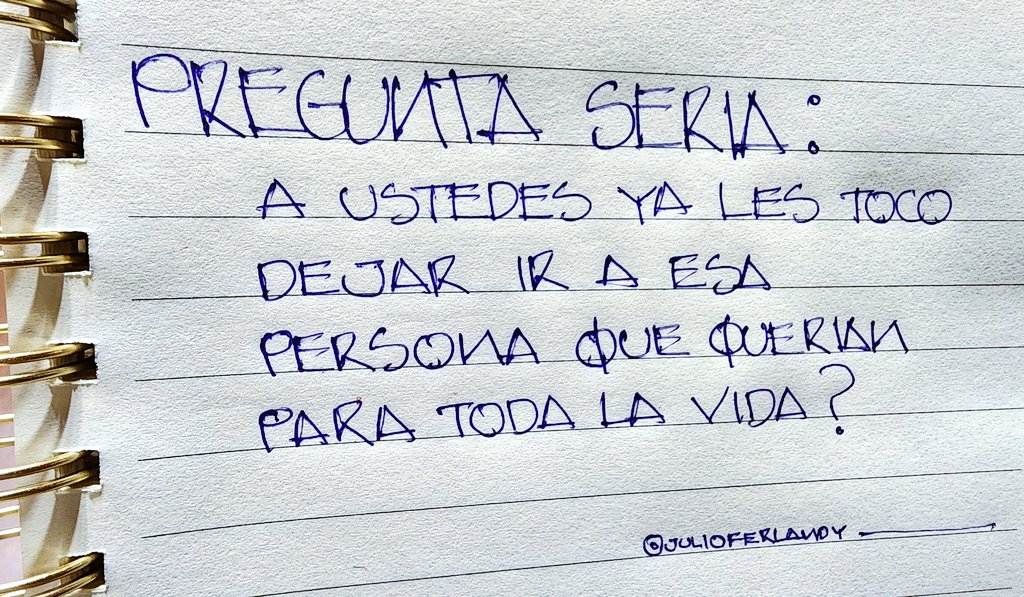 PREGUNTA SERIA:
A USTEDES YA LES TOCO
DEJAR IR A ESA
PERSONA QUE QUERIAN
PARA TODA LA VIDA?
@JULIOFERLANDY